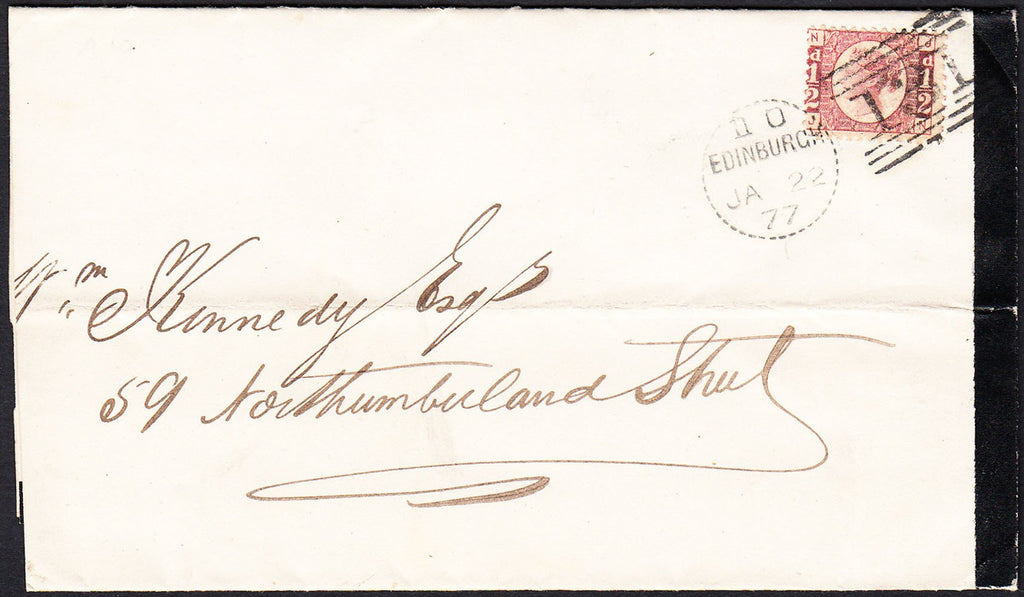 N J
d 1/2 d 1/2
J N
131
11 O
EDINBURGH
JA 22
77
Wm Kennedy Esqr
59 Northumberland Street